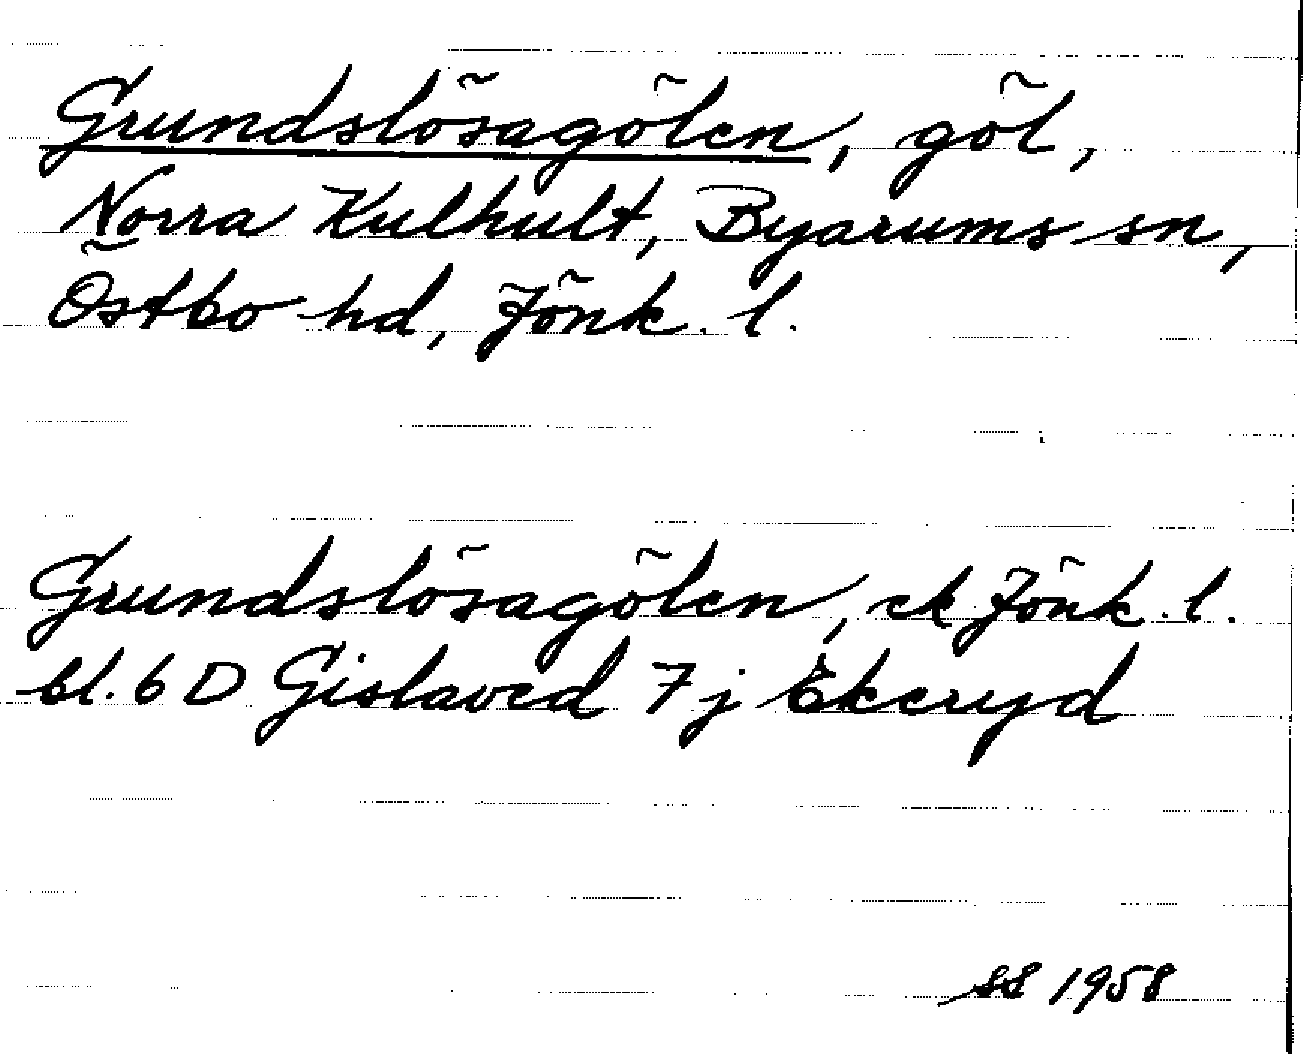 Grundslösagölen, göl,
Norra Kulhult, Byarums sn,
Östbo hd, Jönk. l.
Grundslösagölen, ek Jönk. l.
bl. 6 D Gislaved 7 j Ekeryd
SS 1958